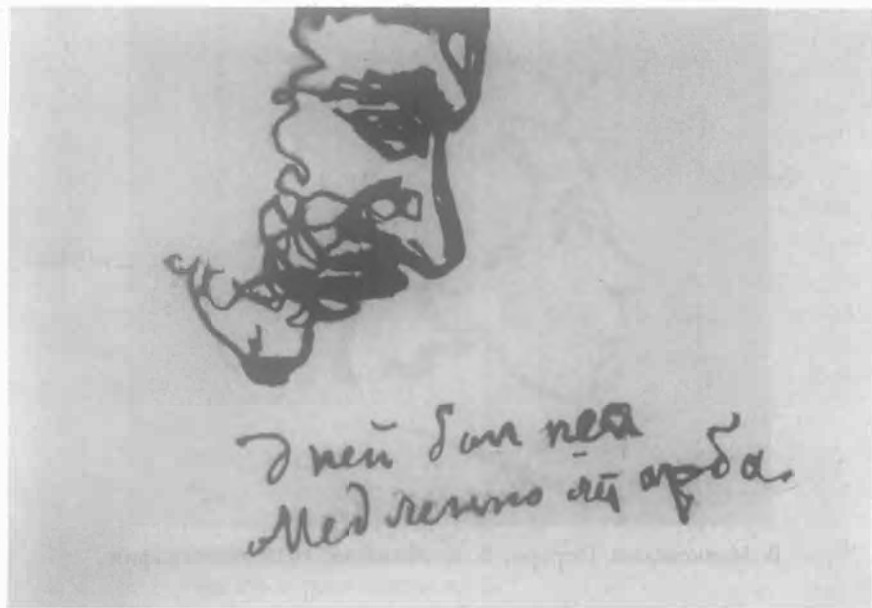 Дней бык пег
Медленно лет арба.